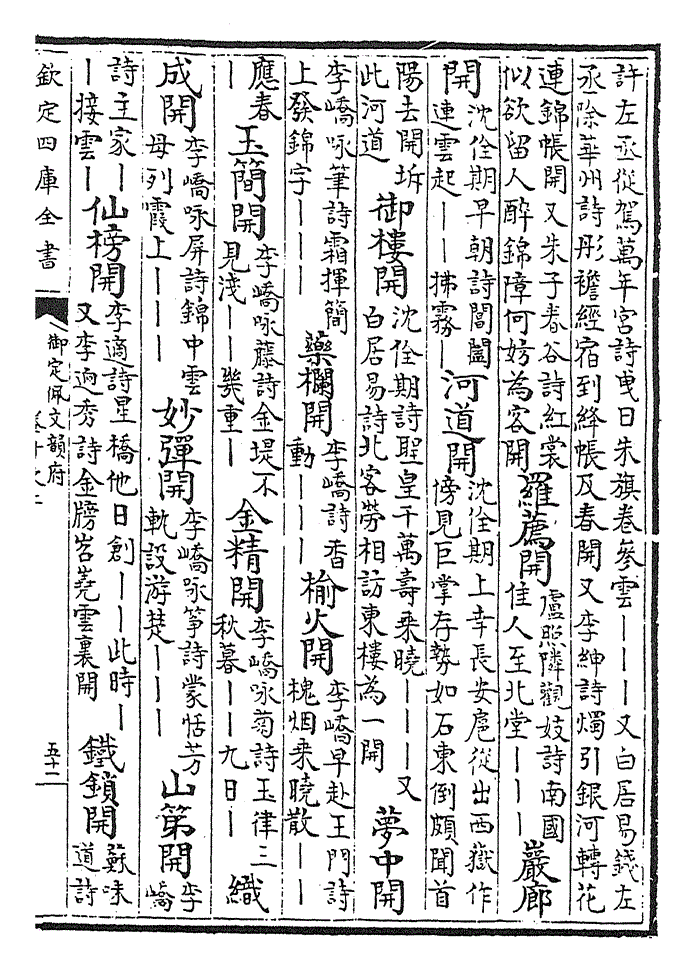 許左丞從駕萬年宮詩曳日朱旗卷參雲｜｜｜又白居易錢左
丞除華州詩彤襜經宿到絳帳及春開又李紳詩燭引銀河轉花
連錦帳開又朱子春谷詩紅裳似欲留人醉錦障何妨為客開 羅薦開 盧照隣觀妓詩南國佳人至北堂｜｜｜ 巖廊
開 沈佺期早朝詩閶闔連雲起｜｜拂霧｜ 河道開 沈佺期上幸長安扈從出西嶽作傍見巨掌存勢如石東倒頗聞首
陽去開坼此河道 御樓開 沈佺期詩聖皇千萬壽乘曉｜｜｜又白居易詩北客勞相訪東樓為一開 夢中開
李嶠咏筆詩霜揮簡上發錦字｜｜｜ 藥欄開 李嶠詩香動｜｜｜ 榆火開 李嶠早赴王門詩槐烟乘曉散｜｜
應春｜ 玉簡開 李嶠咏藤詩金堤不見淺｜｜幾重｜ 金精開 李嶠咏菊詩玉律三秋暮｜｜九日｜ 織
成開 李嶠咏屏詩錦中雲母列霞上｜｜｜ 妙彈開 李嶠咏箏詩蒙恬芳軌設游楚｜｜｜ 山第開 李嶠
詩主家｜｜接雲｜ 仙榜開 李適詩星橋他日創｜｜此時｜又李逈秀詩金牓岧嶤雲裏開 鐵鎖開 蘇味道詩
欽定四庫全書 御定佩文韻府 卷十之二 五十二